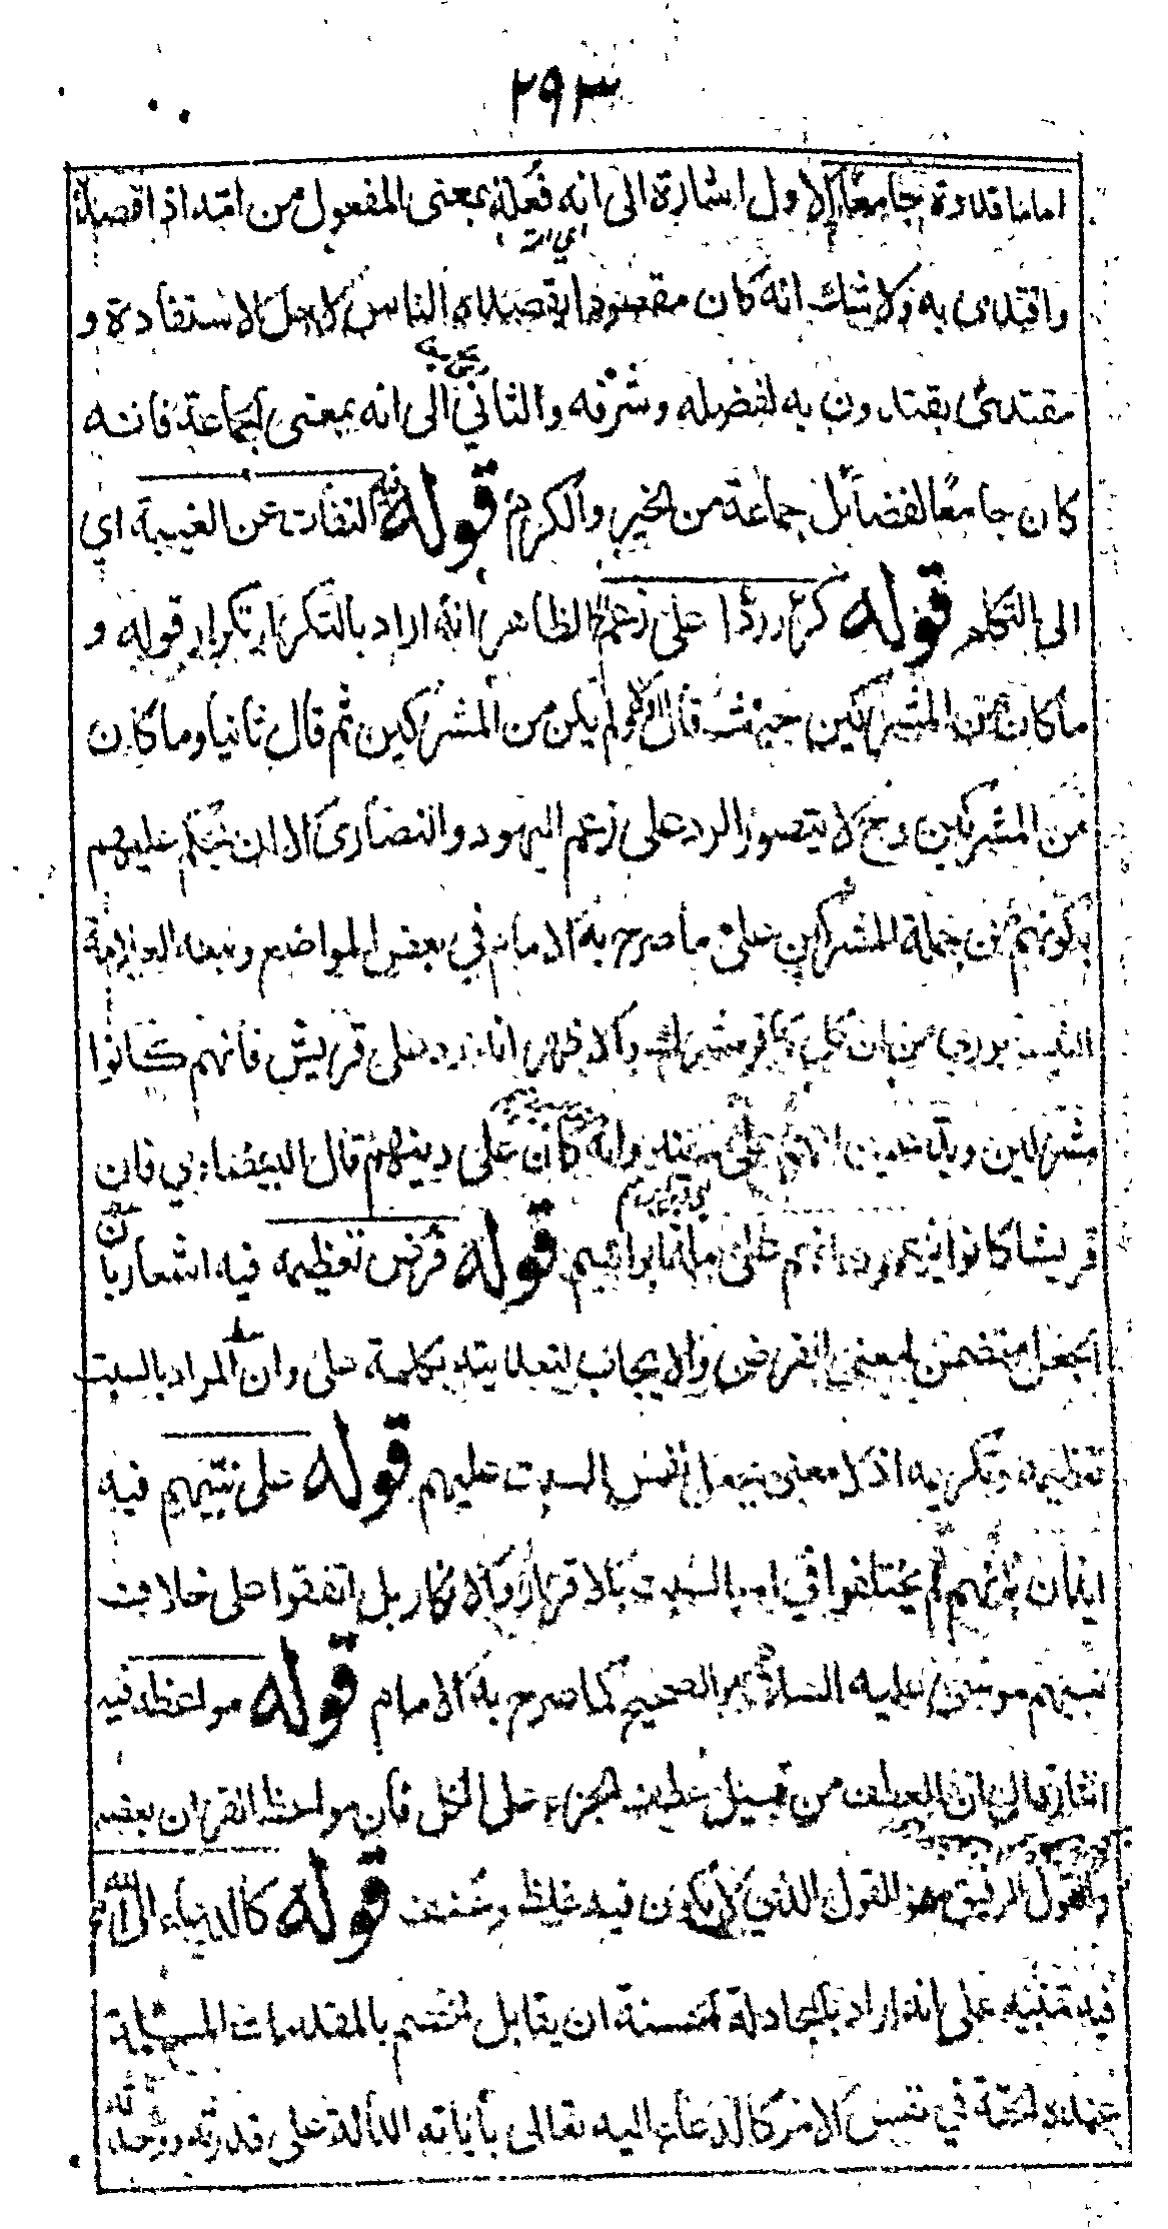 ٢٩٣
اماما قدوة جامعا الاول اشارة الى انه فعلة بمعنى المفعول من امه اذا قصده
واقتدى به ولا شك انه كان مقصودا يقصده الناس لاجل الاستفادة و
مقتدى يقتدون به لفضله وشرفه والثاني الى انه بمعنى الجماعة فانه
كان جامعا لفضائل جماعة من الخير والكرم قوله فيه التفات عن الغيبة اي
الى التكلم قوله كرر ردا على زعم الظاهر انه اراد بالتكرار تكرار قوله و
ما كان من المشركين حيث قال اولا ولم يكن من المشركين ثم قال ثانيا وما كان
من المشركين وح لا يتصور الرد على زعم اليهود والنصارى الا ان يحكم عليهم
بكونهم من جملة المشركين على ما صرح به الامام في بعض المواضع وتبعه العلامة
من ان كل كافر مشرك والاظهر انه رد على قريش فانهم كانوا
مشركين ويدعون انهم على وانه كان على دينهم قال البيضاوي فان
قريشا كانوا يزعمون انهم على ملة ابراهيم قوله فرض تعظيمه فيه اشعار بان
الجعل متضمن لمعنى الفرض والايجاب لتعديته بكلمة على وان المراد بالسبت
تعظيمه وتكريمه اذ لا معنى لجعل نفس السبت عليهم قوله على نبيهم فيه
ايذان بانهم لم يختلفوا في امر السبت بالاقرار والانكار بل اتفقوا على خلاف
نبيهم موسى عليه السلام هو الصحيح كما صرح به الامام قوله مواعظه فيه
اشارة الى ان العطف من قبيل عطف الجزء على الكل فان مواعظ القران بعضه
والقول الرفيق هو القول الذي لا يكون فيه غلظ وعنف قوله كالدعاء الى الله
فيه تنبيه على انه اراد بالمجادلة الحسنة ان يقابل الخصم بالمقدمات المسلمة
عنده الحقة في نفس الامر كالدعاء اليه تعالى بأياته الدالة على قدرته ووحدته